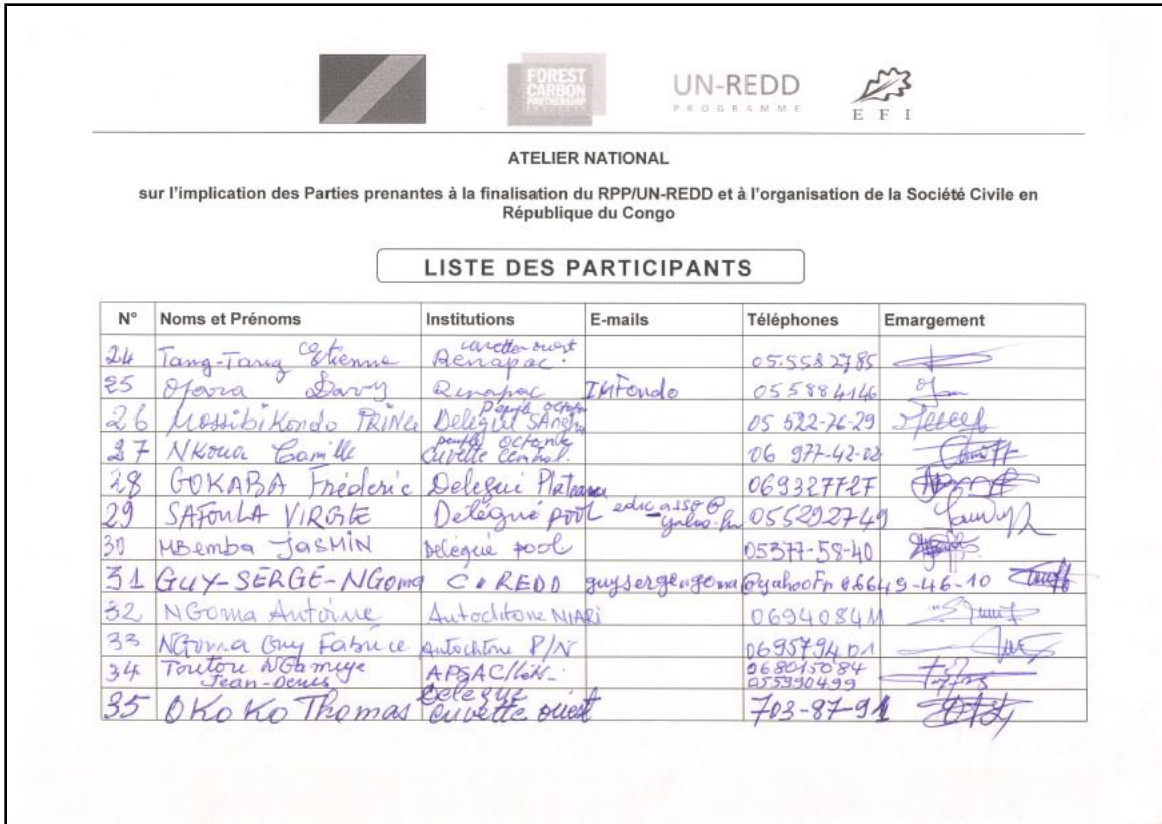 FOREST CARBON PARTNERSHIP
UN-REDD
PROGRAMME
EFI
ATELIER NATIONAL
sur l'implication des Parties prenantes à la finalisation du RPP/UN-REDD et à l'organisation de la Société Civile en
République du Congo
LISTE DES PARTICIPANTS
N° Noms et Prénoms Institutions E-mails Téléphones Emargement
24 Tang-Tang Etienne Renapac 05.558 2785
25 Davy Renapac 055884146
26 Mossibikondo PRINCE Délégué 05 522-76-29
27 Nkoua Camille Cuvette Central. 06 977-42-02
28 GOKABA Fréderic Delegué Plateaux 069327727
29 SAFOULA VIRGILE Délégué pool edic_asso@yahoo.fr 055292749
30 MBemba JASMIN Délégué pool 05377-58-40
31 GUY-SERGE-NGoma guysergengoma@yahooFr 06649-46-10
32 NGoma Antoine Autochtone NIARI 069408411
33 NGoma Guy Fabrice Autochtone P/N 069579401
34 Toutou NGamuye Jean-Denis 068015084
055390499
35 OKoKo Thomas Délégué cuvette ouest 703-87-91